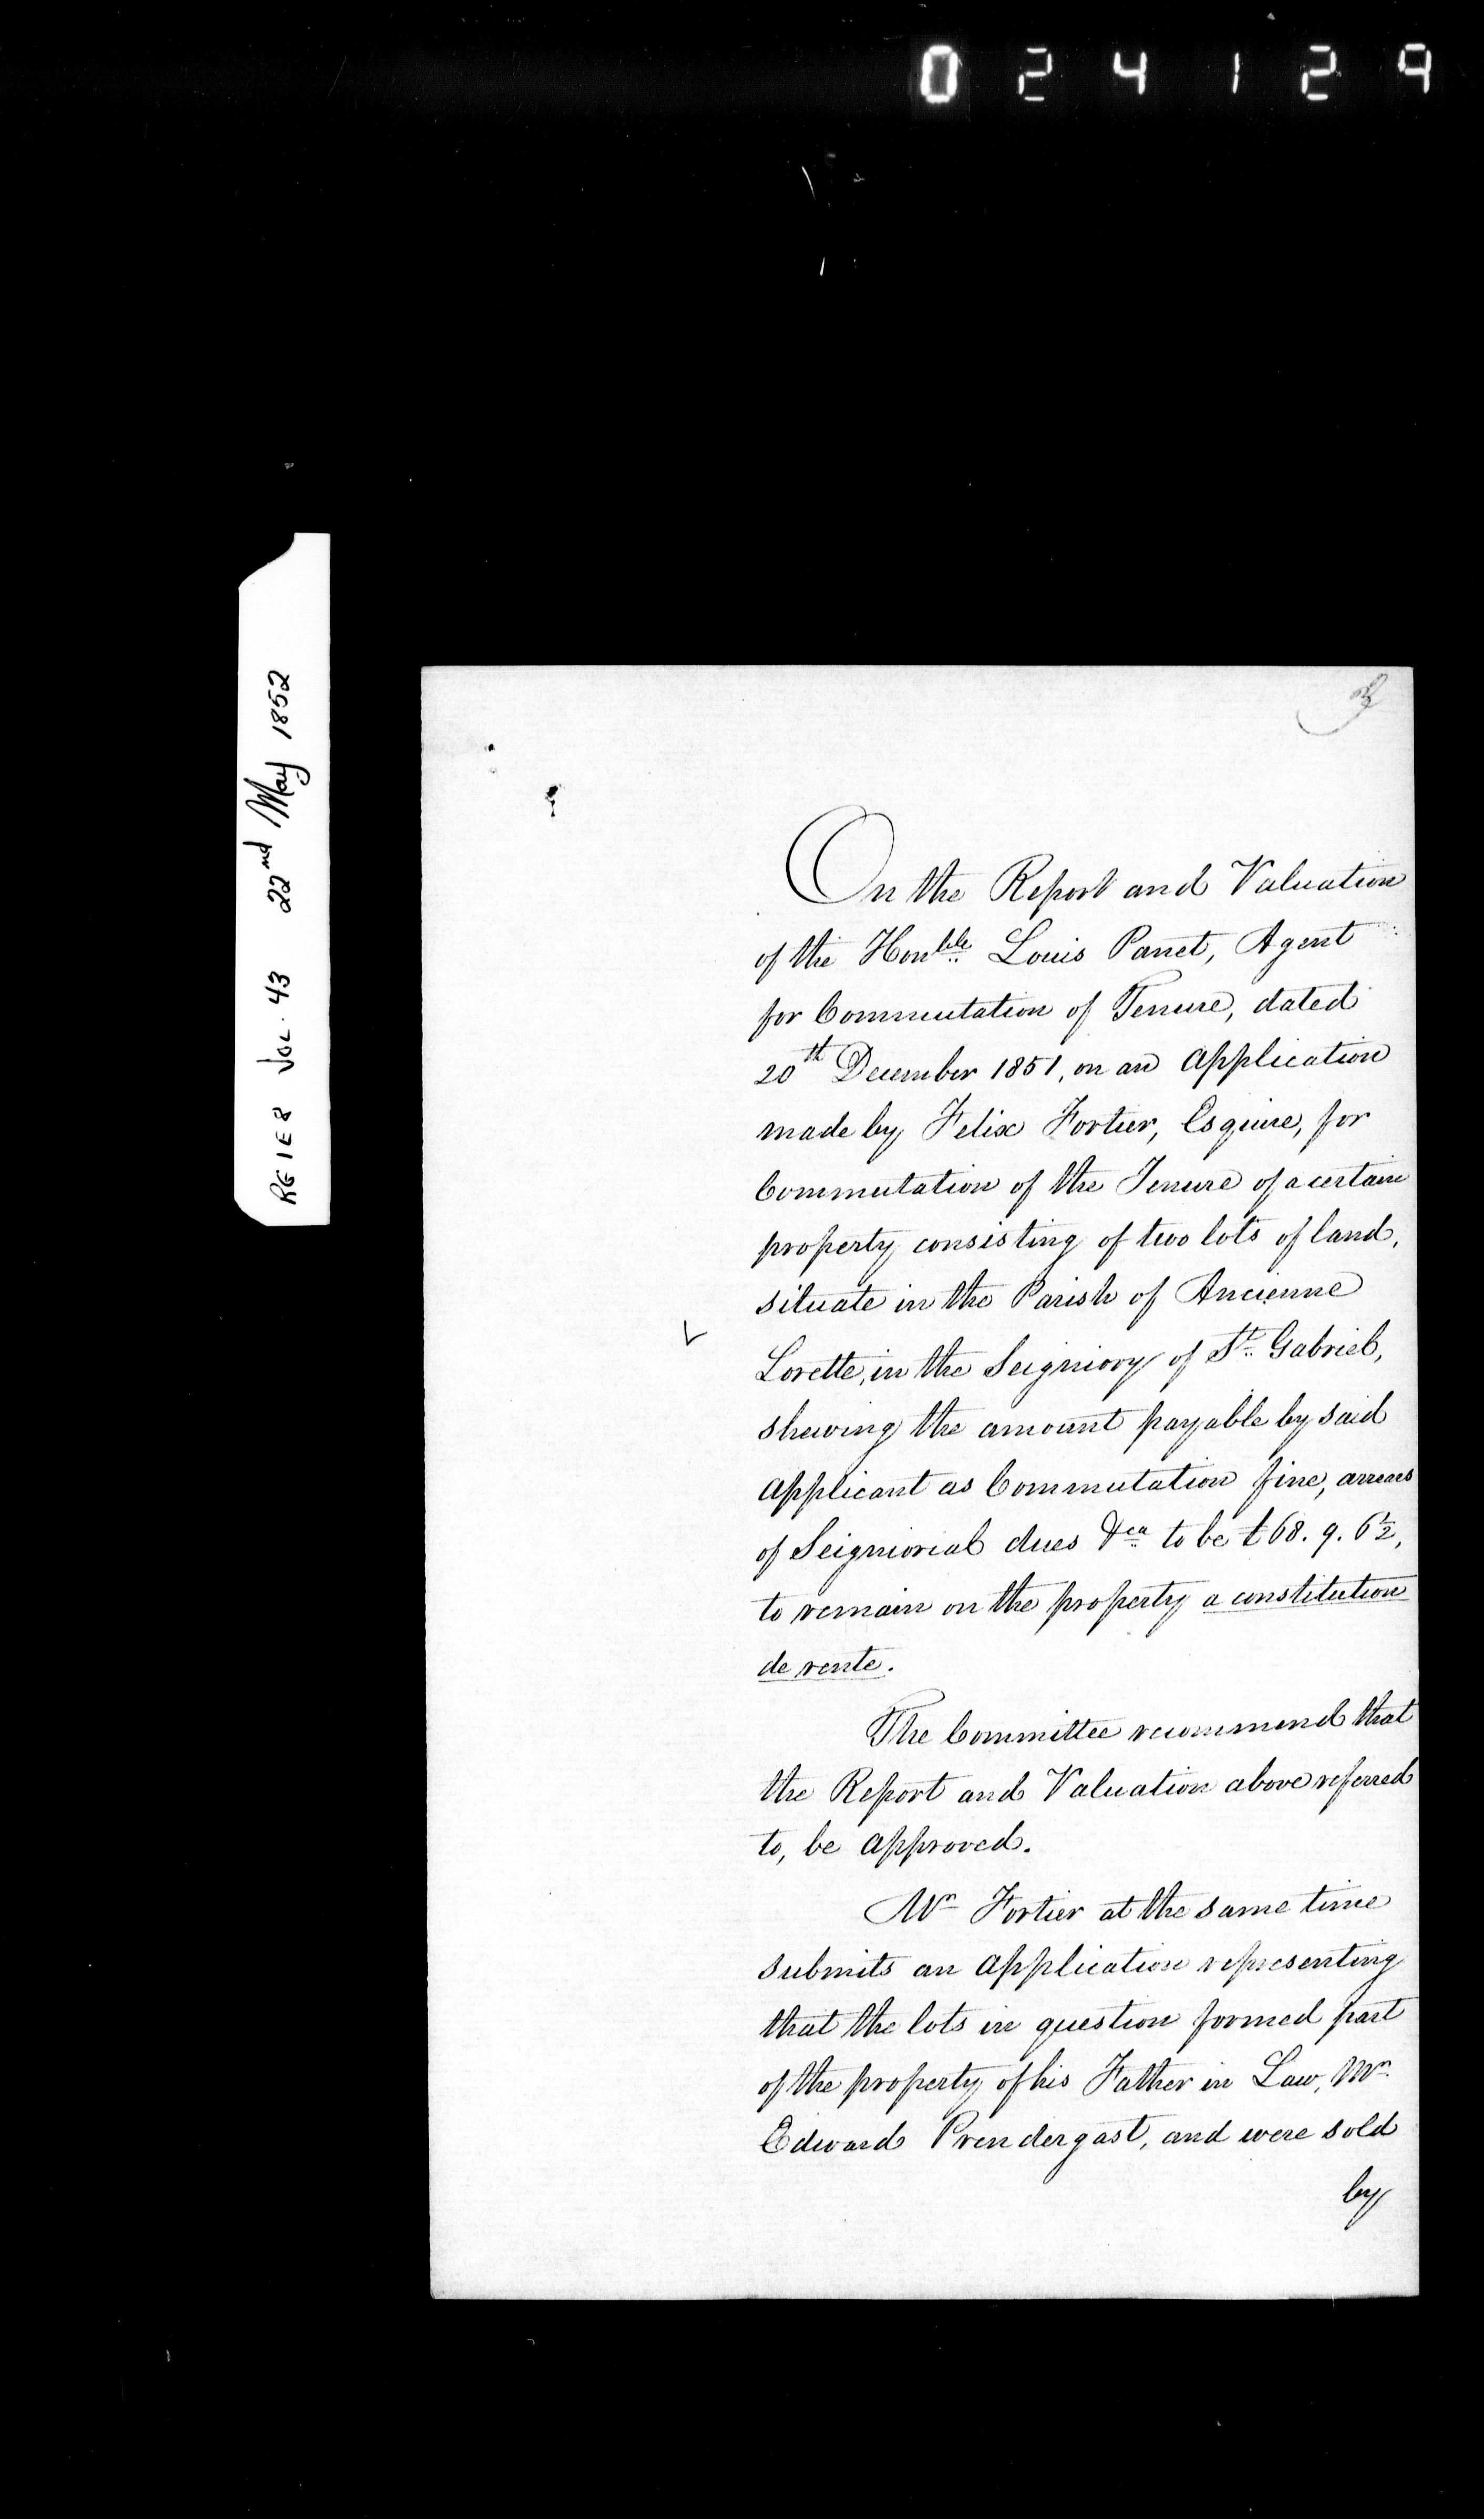 024129
RG 1 E 8 VOL. 43 22nd May 1852
On the Report and Valuation
of the Honble. Louis Panet, Agent
for Commutation of Tenure, dated
20th December 1851, on an Application
made by Felix Fortier, Esquire, for
Commutation of the Tenure of a certain
property consisting of two lots of land,
situate in the Parish of Ancienne
Lorette, in the Seigniory of St. Gabriel,
shewing the amount payable by said
Applicant as Commutation fine, arrears
of Seigniorial dues &ca to be £68. 9. 6½,
to remain on the property a constitution
de rente.
The Committee recommend that
the Report and Valuation above referred
to, be approved.
Mr Fortier at the same time
submits an Application representing
that the lots in question formed part
of the property of his Father in Law, Mr.
Edward Prendergast, and were sold
by